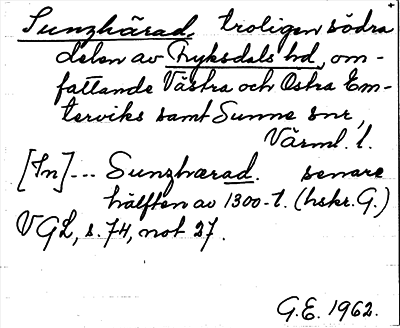 Sunzhärad, troligen södra
delen av Fryksdals hd, om-
fattande Västra och Östra Em-
terviks samt Sunne snr,
Värml. l.
[In]--- Sunzhærad. senare
hälften av 1300-t. (hskr. G.)
VGL, s. 74, not 27.
G.E. 1962.